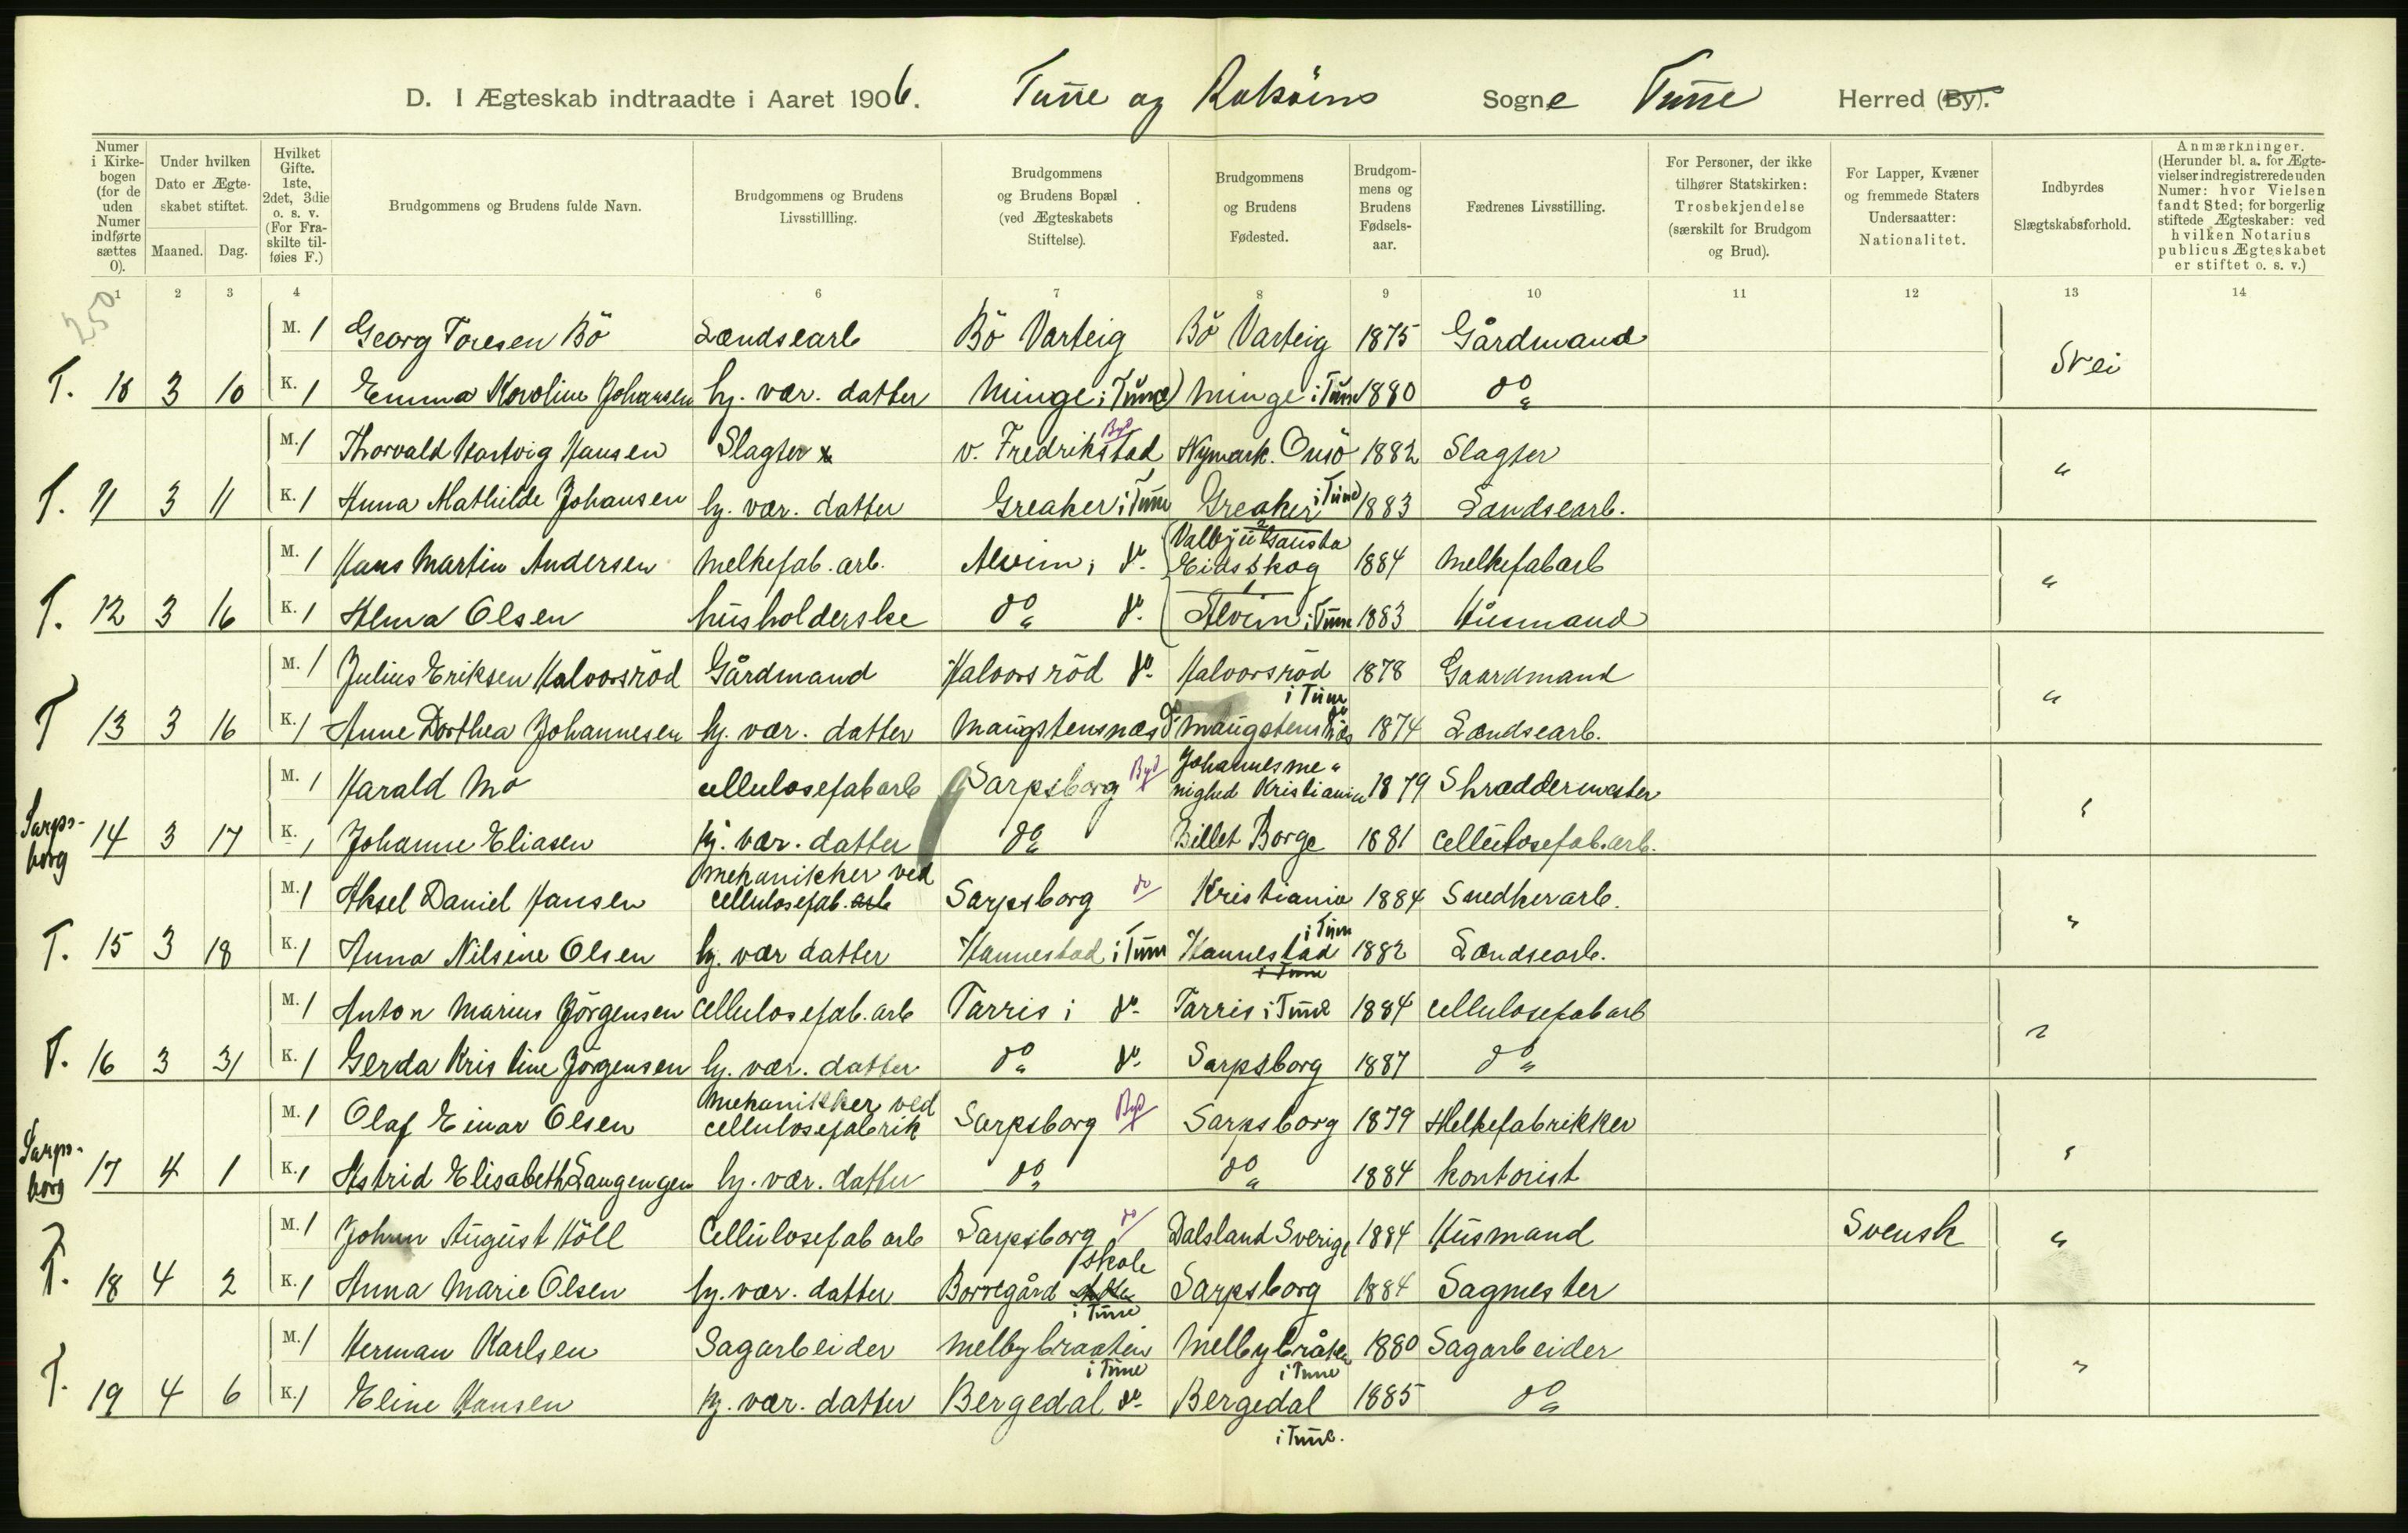 D. I Ægteskab indtraadte i Aaret 1906. Tune og Rokøens Sogne Tune Herred (By).
Numer i Kirkebogen (for de uden Numer indførte sættes 0).
Under hvilken Dato er Ægteskabet stiftet.
Maaned. Dag.
Hvilket Gifte. 1ste, 2det, 3die o. s. v. (For Fraskilte tilføies F.)
Brudgommens og Brudens fulde Navn.
Brudgommens og Brudens Livsstillling.
Brudgommens og Brudens Bopæl (ved Ægteskabets Stiftelse).
Brudgommens og Brudens Fødested.
Brudgommens og Brudens Fødselsaar.
Fædrenes Livsstilling.
For Personer, der ikke tilhører Statskirken: Trosbekjendelse (særskilt for Brudgom og Brud).
For Lapper, Kvæner og fremmede Staters Undersaatter: Nationalitet.
Indbyrdes Slægtskabsforhold.
Anmærkninger. (Herunder bl. a. for Ægtevielser indregistrerede uden Numer: hvor Vielsen fandt Sted; for borgerlig stiftede Ægteskaber: ved hvilken Notarius publicus Ægteskabet er stiftet o. s. v.)
1 2 3 4 6 7 8 9 10 11 12 13 14
250
M. 1 Georg Toresen Bö Landsearb Bö Varteig Bö Varteig 1875 Gårdmand
T. 10 3 10 K. 1 Emma Karoline Johansen hj. vær. datter Minge i Tune) Minge i Tune 1880 do Nei
M. 1 Thorvald Hartvig Hansen Slagter v. Fredrikstad Byd Nymark. Onsö 1882 Slagter
T. 11 3 11 K. 1 Anna Mathilde Johansen hj. vær. datter Greaker i Tune Greaker i Tune) 1883 Landsearb. "
M. 1 Hans Martin Andersen Melkefab. arb. Alvim i do Eidsskog 1884 Melkefabarb
T. 12 3 16 K. 1 Alma Olsen husholderske do do Alvim i Tune 1883 Husmand "
M. 1 Julius Eriksen Halvorsröd Gårdmand Halvorsröd do Halvorsröd i Tune 1878 Gaardmand
T 13 3 16 K. 1 Anne Dorthea Johannesen hj. vær. datter Maugstensnæs do Maugstensnæs do 1874 Landsearb. "
M. 1 Harald Mo cellulosefabarb Sarpsborg Byd Johannesmenighed Kristiania 1879 Skræddermester
Sarpsborg 14 3 17 K. 1 Johanne Eliasen hj. vær. datter do Billet Borge 1881 cellulosefab.arb. "
M. 1 Aksel Daniel Hansen Mekanikker ved cellulosefab. arb Sarpsborg do Kristiania 1884 Snedkerarb.
T. 15 3 18 K. 1 Anna Nilsine Olsen hj. vær datter Hannestad i Tune Hannestad i Tune i Tune 1882 Landsearb. "
M. 1 Anton Marius Jörgensen cellulosefab. arb Tarris i do Tarris i Tune 1884 cellulosefabarb
T. 16 3 31 K. 1 Gerda Kristine Jörgensen hj. vær. datter do do Sarpsborg 1887 do "
M. 1 Olaf Einar Olsen Mekanikker ved cellulosefabrik Sarpsborg Byd Sarpsborg 1879
Sarpsborg 17 4 1 K. 1 Astrid Elisabeth Langengen hj. vær. datter do do 1884 kontorist "
M. 1 Johan August Höll Cellulosefab arb Sarpsborg do Dalsland Sverige 1884 Husmand Svensk
T. 18 4 2 K. 1 Anna Marie Olsen hj. vær. datter Borregård skole i Tune Sarpsborg 1884 Sagmester "
M. 1 Herman Karlsen Sagarbeider Melbybraaten i Tune Melbybråten i Tune 1880 Sagarbeider
T. 19 4 6 K. 1 Eline Hansen hj. vær. datter Bergedal do Bergedal i Tune. 1885 do "